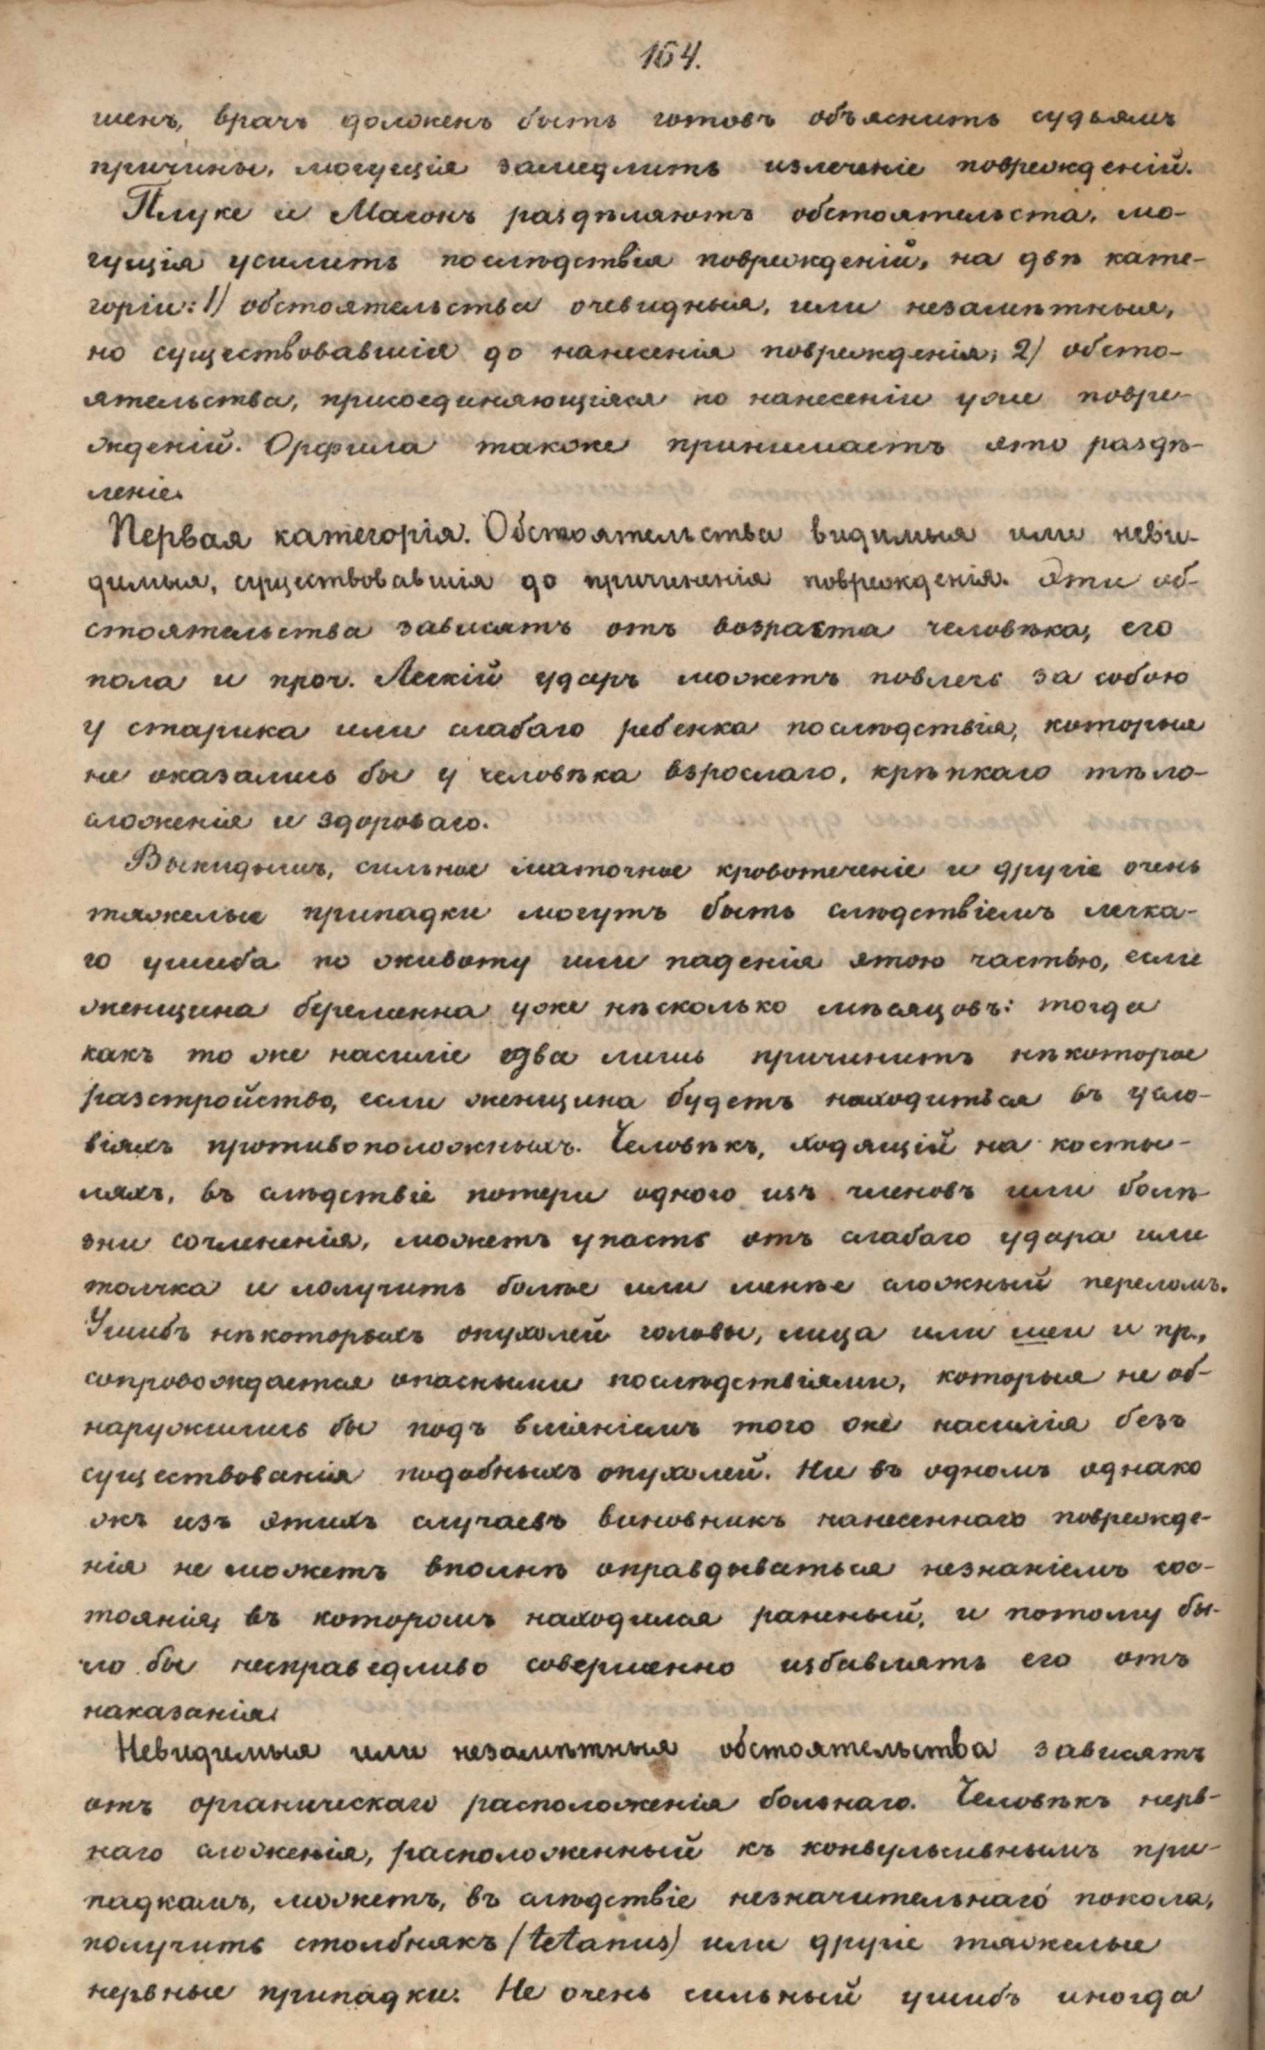 164.
шенъ, врачъ долженъ быть готовъ объяснить судьямъ
причины, могущія замедлить излеченіе поврежденій.
Плуке и Магонъ раздѣляютъ обстоятельста, мо-
гущія усилить послѣдствія поврежденій, на двѣ кате-
горіи: 1) обстоятельства очевидныя, или незамѣтныя,
но существовавшія до нанесенія поврежденія; 2) обсто-
ятельства, присоединяющіяся по нанесеніи уже повре-
жденій. Орфила также принимаетъ это раздѣ-
леніе.
Первая категорія. Обстоятельства видимыя или неви-
димыя, существовавшія до причиненія поврежденія. Эти об-
стоятельства зависятъ отъ возраста человѣка, его
пола и проч. Легкій ударъ можетъ повлечь за собою
у старика или слабаго ребенка послѣдствія, которыя
не оказались бы у человѣка взрослаго, крѣпкаго тѣло-
сложенія и здороваго.
Выкидышъ, сильное маточное кровотеченіе и другіе очень
тяжелые припадки могутъ быть слѣдствіемъ легка-
го ушиба по животу или паденія этою частью, если
женщина беременна уже нѣсколько мѣсяцовъ: тогда
какъ то же насиліе едва лишь причинитъ нѣкоторое
разстройство, если женщина будетъ находиться въ усло-
віяхъ противоположныхъ. Человѣкъ, ходящій на косты-
ляхъ, въ слѣдствіе потери одного изъ членовъ или болѣ-
зни сочлененія, можетъ упасть отъ слабаго удара или
толчка и получить болѣе или менѣе сложный переломъ.
Ушибъ нѣкоторыхъ опухолей головы, лица или шеи и пр.,
сопровождается опасными послѣдствіями, которыя не об-
наружились бы подъ вліяніемъ того же насилія безъ
существованія подобныхъ опухолей. Ни въ одномъ однако
жъ изъ этихъ случаевъ виновникъ нанесеннаго поврежде-
нія не можетъ вполнѣ оправдываться незнаніемъ сос-
тоянія, въ которомъ находился раненый, и потому бы-
ло бы несправедливо совершенно избавлять его отъ
наказанія.
Невидимыя или незамѣтныя обстоятельства зависятъ
отъ органическаго расположенія больнаго. Человѣкъ нерв-
наго сложенія, расположенный къ конвульсивнымъ при-
падкамъ, можетъ, въ слѣдствіе незначительнаго покола,
получить столбнякъ (tetanus) или другіе тяжелые
нервные припадки. Не очень сильный ушибъ иногда